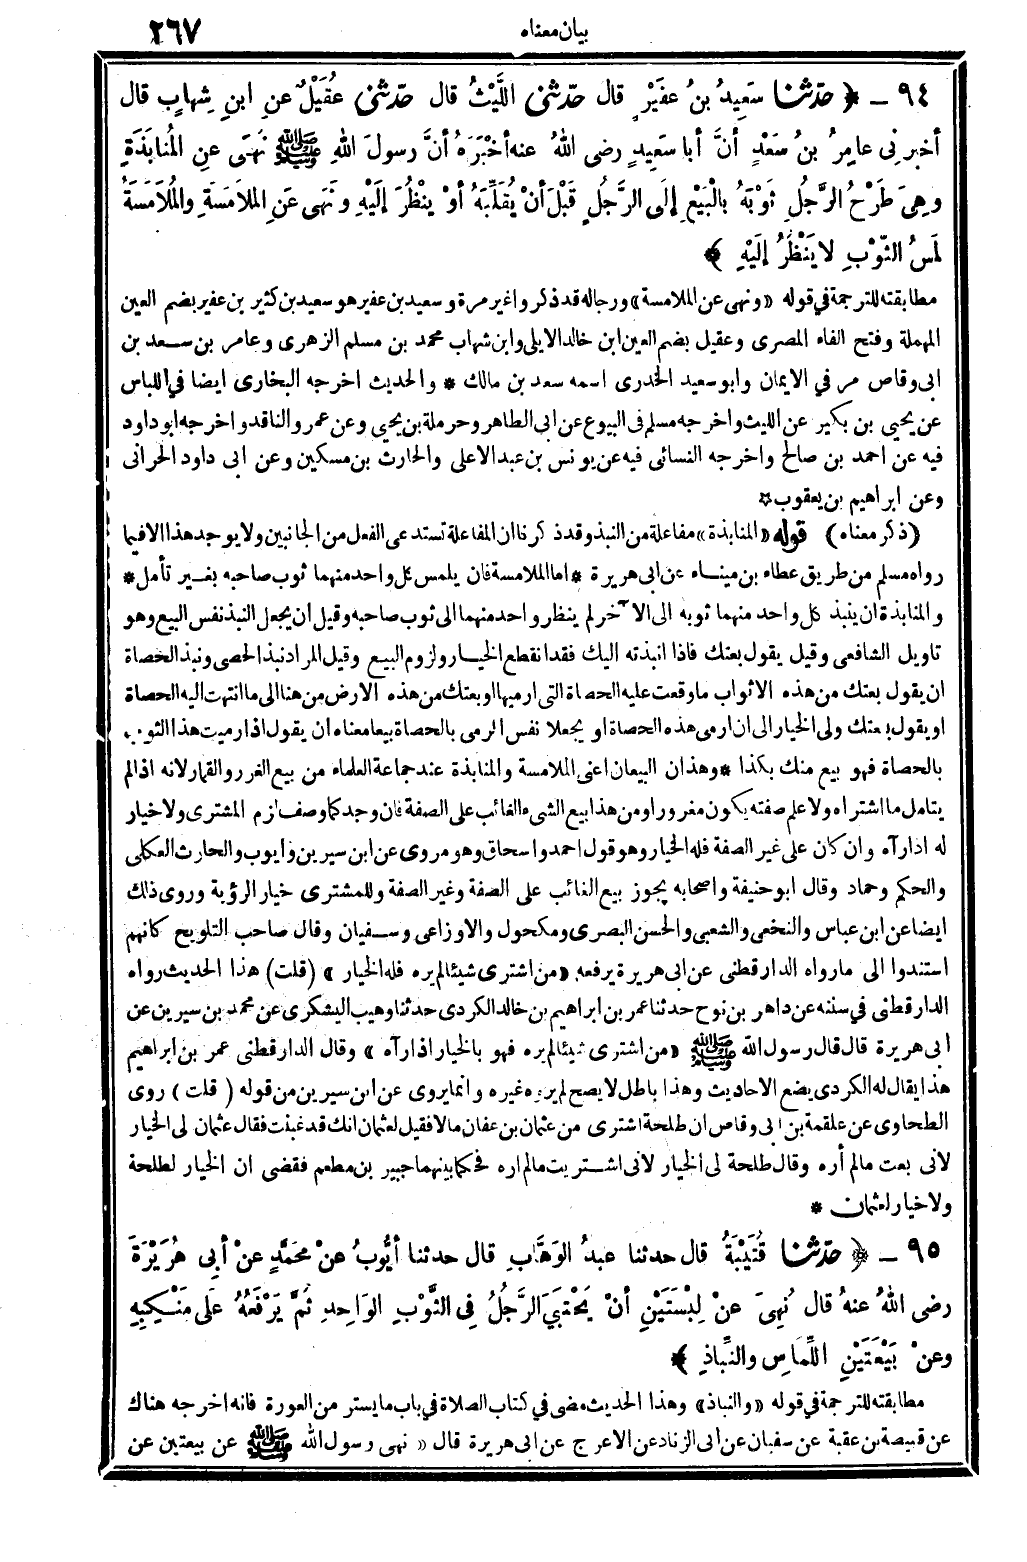 بيان معناه
٢٦٧
٩٤ ــ ﴿ حدّثنا سَعِيدُ بنُ عفَيْرٍ قال حدّثني اللَّيْثُ قال حدّثني عُقَيْلٌ عنِ ابنِ شِهابٍ قال
أخبرني عامِرُ بنُ سَعْدٍ أنَّ أبا سَعِيدٍ رضي اللهُ عنه أخْبَرَهُ أنَّ رسولَ اللهِ ﷺ نَهَى عنِ المُنابَذَةِ
وهِيَ طَرْحُ الرَّجُلِ ثَوْبَهُ بالْبَيْعِ إلَى الرَّجُلِ قَبْلَ أنْ يُقَلِّبَهُ أوْ ينْظُرَ إلَيْهِ ونَهَى عَنِ المُلاَمَسَةِ والمُلاَمَسَةُ
لَمْسُ الثَّوْبِ لا يَنْظُرُ إلَيْهِ ﴾
مطابقته للترجمة في قوله «ونهى عن الملامسة» ورجاله قد ذكروا غير مرة وسعيد بن عفير هو سعيد بن كثير بن عفير بضم العين
المهملة وفتح الفاء المصرى وعقيل بضم العين ابن خالد الايلي وابن شهاب محمد بن مسلم الزهرى وعامر بن سعد بن
ابى وقاص مر في الايمان وابو سعيد الخدرى اسمه سعد بن مالك * والحديث اخرجه البخارى ايضا في اللباس
عن يحيى بن بكير عن الليث واخرجه مسلم فى البيوع عن ابى الطاهر وحرملة بن يحيى وعن عمرو الناقد واخرجه ابو داود
فيه عن احمد بن صالح واخرجه النسائى فيه عن يونس بن عبد الاعلى والحارث بن مسكين وعن ابى داود الحرانى
وعن ابراهيم بن يعقوب *
(ذكر معناه) قوله «المنابذة» مفاعلة من النبذ وقد ذكرنا ان المفاعلة تستدعى الفعل من الجانبين ولا يوجد هذا الا فيما
رواه مسلم من طريق عطاء بن ميناء عن ابى هريرة * اما الملامسة فان يلمس كل واحد منهما ثوب صاحبه بغير تأمل *
والمنابذة ان ينبذ كل واحد منهما ثوبه الى الآخر لم ينظر واحد منهما الى ثوب صاحبه وقيل ان يجعل النبذ نفس البيع وهو
تاويل الشافعى وقيل يقول بعتك فاذا انبذته اليك فقد انقطع الخيار ولزوم البيع وقيل المراد نبذ الحصى ونبذ الحصاة
ان يقول بعتك من هذه الاثواب ما وقعت عليه الحصاة التى ارميها او بعتك من هذه الارض من هنا الى ما انتهت اليه الحصاة
او يقول بعتك ولى الخيار الى ان ارمى هذه الحصاة او يجعلا نفس الرمى بالحصاة بيعا معناه ان يقول اذا رميت هذا الثوب
بالحصاة فهو بيع منك بكذا * وهذان البيعان اعنى الملامسة والمنابذة عند جماعة العلماء من بيع الغرر والقمار لانه اذا لم
يتامل ما اشتراه ولا علم صفته يكون مغرورا ومن هذا بيع الشىء الغائب على الصفة فان وجد كما وصف لزم المشترى ولا خيار
له اذا رآه وان كان على غير الصفة فله الخيار وهو قول احمد واسحاق وهو مروى عن ابن سيرين وايوب والحارث العكلى
والحكم وحماد وقال ابو حنيفة واصحابه يجوز بيع الغائب على الصفة وغير الصفة وللمشترى خيار الرؤية وروى ذلك
ايضا عن ابن عباس والنخعى والشعبى والحسن البصرى ومكحول والاوزاعى وسفيان وقال صاحب التلويح كانهم
استندوا الى ما رواه الدارقطنى عن ابى هريرة يرفعه «من اشترى شيئا لم يره فله الخيار» (قلت) هذا الحديث رواه
الدارقطنى في سننه عن داهر بن نوح حدثنا عمر بن ابراهيم بن خالد الكردى حدثنا وهيب اليشكرى عن محمد بن سيرين عن
ابى هريرة قال قال رسول الله ﷺ «من اشترى شيئا لم يره فهو بالخيار اذا رآه» وقال الدارقطنى عمر بن ابراهيم
هذا يقال له الكردى يضع الاحاديث وهذا باطل لا يصح لم يروه غيره وانما يروى عن ابن سيرين من قوله (قلت) روى
الطحاوى عن علقمة بن ابى وقاص ان طلحة اشترى من عثمان بن عفان مالا فقيل لعثمان انك قد غبنت فقال عثمان لى الخيار
لانى بعت ما لم أره وقال طلحة لى الخيار لانى اشتريت ما لم اره فحكما بينهما جبير بن مطعم فقضى ان الخيار لطلحة
ولا خيار لعثمان *
٩٥ ــ ﴿ حدّثنا قُتَيْبَةُ قال حدثنا عبدُ الوَهَّابِ قال حدثنا أيُّوبُ عنْ محَمَّدٍ عنْ أبي هُرَيْرَةَ
رضي اللهُ عنهُ قال نُهِيَ عنْ لِبْسَتَيْنِ أنْ يَحْتَبِيَ الرَّجُلُ في الثَّوْبِ الوَاحِدِ ثُمَّ يَرْفَعُهُ عَلَى مَنْكِبِهِ
وعنْ بَيْعَتَيْنِ اللِّمَاسِ والنِّباذِ ﴾
مطابقته للترجمة في قوله «والنباذ» وهذا الحديث مضى في كتاب الصلاة في باب ما يستر من العورة فانه اخرجه هناك
عن قبيصة بن عقبة عن سفيان عن ابى الزناد عن الاعرج عن ابى هريرة قال «نهى رسول الله ﷺ عن بيعتين عن